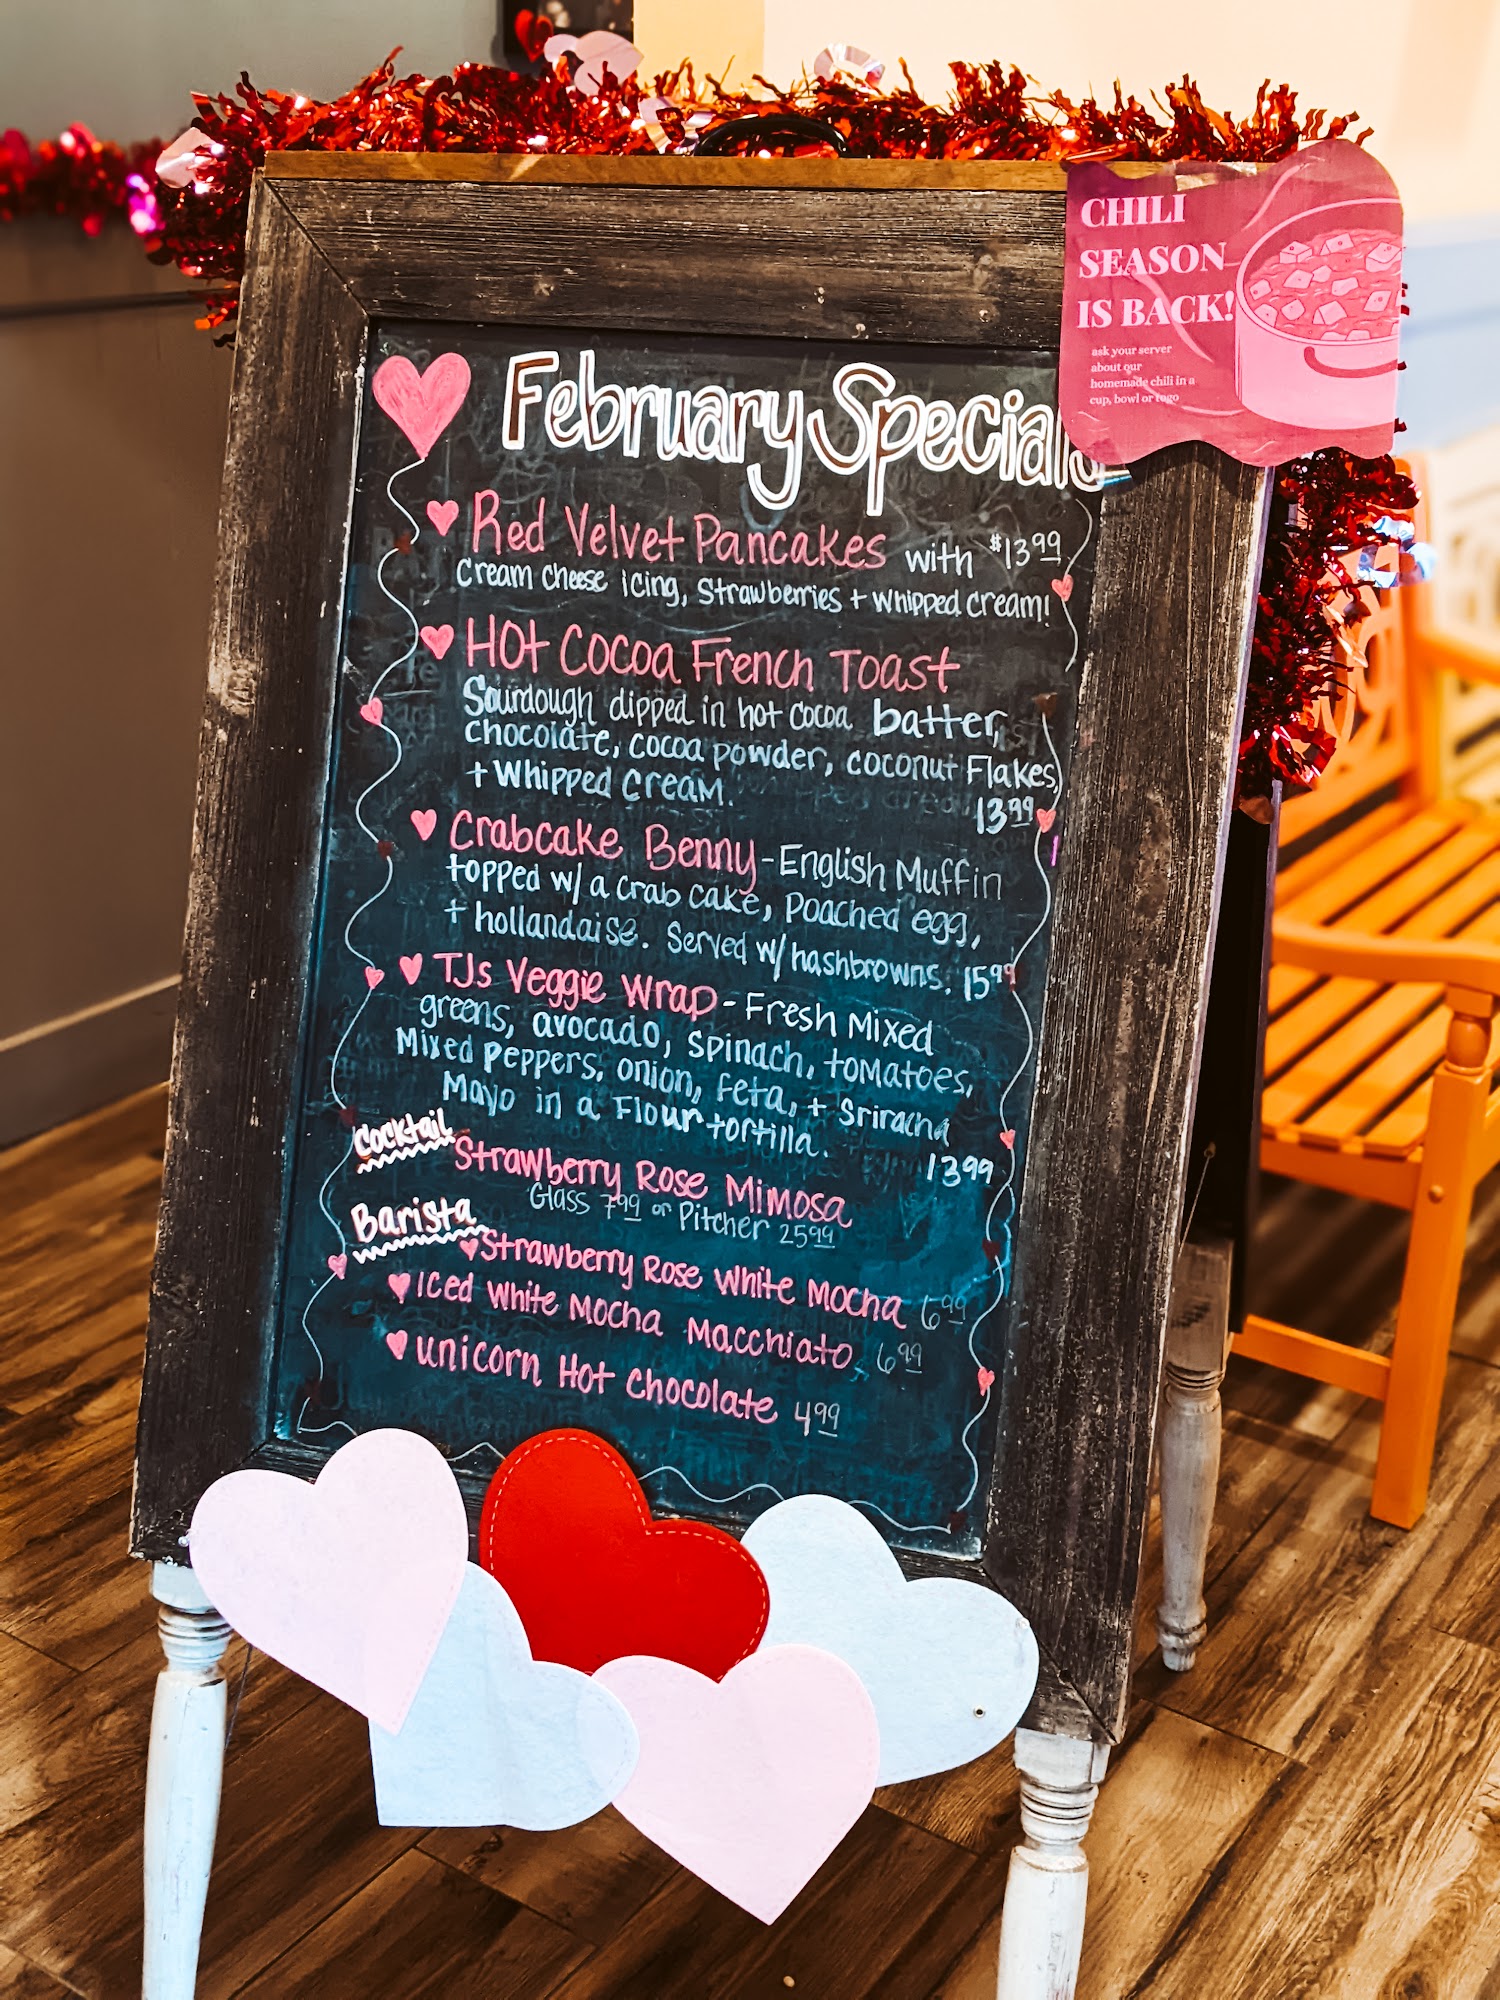 CHILI
SEASON
IS BACK!
ask your server
about our
homemade chili in a
cup, bowl or togo
February Specials
Red Velvet Pancakes with $13.99
Cream cheese icing, strawberries + whipped cream!
Hot Cocoa French Toast
Sourdough dipped in hot cocoa batter,
chocolate, cocoa powder, coconut Flakes,
+ whipped cream.
13.99
Crabcake Benny - English Muffin
topped w/ a crab cake, poached egg,
+ hollandaise. Served w/ hashbrowns. 15.99
TJs Veggie Wrap - Fresh Mixed
greens, avocado, spinach, tomatoes,
Mixed peppers, onion, feta, + Sriracha
Mayo in a Flour tortilla.
13.99
Cocktail Strawberry Rose Mimosa
Glass 7.99 or Pitcher 25.99
Barista
Strawberry Rose White Mocha 6.99
Iced White Mocha Macchiato 6.99
Unicorn Hot Chocolate 4.99